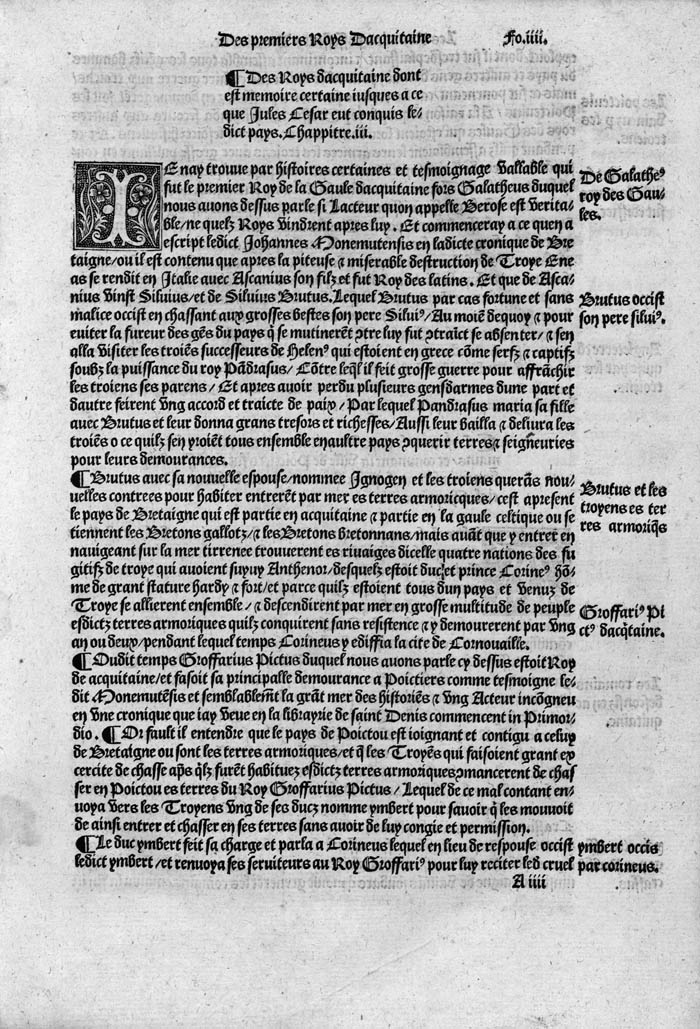 Des premiers Roys Dacquitaine Fo.iiii.
¶ Des Roys dacquitaine dont
est memoire certaine iusques a ce
que Jules Cesar eut conquis le-
dict pays. Chappitre.iii.
IE nay trouve par histoires certaines et tesmoignage vallable qui
fut le premier Roy de la Gaule dacquitaine fois Galatheus duquel
nous avons dessus parle si Lacteur quon appelle Berose est verita-
ble/ne quelz Roys vindrent apres luy. Et commenceray a ce quen a
escript ledict Johannes Monemutensis en ladicte cronique de Bre
taigne/ou il est contenu que apres la piteuse ⁊ miserable destruction de Troye Ene
as se rendit en Italie avec Ascanius son filz et fut Roy des latins. Et que de Asca-
nius vinst Siluius/et de Siluius Brutus. Lequel Brutus par cas fortune et sans
malice occist en chassant aux grosses bestes son pere Siluiꝰ/Au moiẽ dequoy ⁊ pour
eviter la fureur des gẽs du pays q̃ se mutinerẽt ꝯtre luy fut ꝯtraict se absenter/⁊ sen
alla visiter les troiẽs successeurs de Helenꝰ qui estoient en grece cõme serfz ⁊ captifz
soubz la puissance du roy Pãdrasus/ Cõtre leq̃l il feit grosse guerre pour affrãchir
les troiens ses parens/ Et apres avoir perdu plusieurs gensdarmes dune part et
dautre feirent vng accord et traicte de paix/ Par lequel Pandrasus maria sa fille
avec Brutus et leur donna grans tresors et richesses/Aussi leur bailla ⁊ delivra les
troiẽs o ce quilz sen yroiẽt tous ensemble en aultre pays ꝯquerir terres ⁊ seigneuries
pour leurs demourances.
¶ Brutus avec sa nouvelle espouse/nommee Ignogen et les troiens querãs nou-
uelles contrees pour habiter entrerẽt par mer es terres armoricques/cest apresent
le pays de Bretaigne qui est partie en acquitaine ⁊ partie en la gaule celtique ou se
tiennent les Bretons gallotz/⁊ les Bretons bretonnans/mais auãt que y entrer en
navigeant sur la mer tirrenee trouuerent es rivaiges dicelle quatre nations des fu
gitifz de troye qui avoient suyuy Anthenor/desquelz estoit duc et prince Corineꝰ hõ-
me de grant stature hardy ⁊ fort/et parce quilz estoient tous dun pays et venuz de
Troye se allierent ensemble/⁊ descendirent par mer en grosse multitude de peuple
esdictz terres armoriques quilz conquirent sans resistence ⁊ y demourerent par vng
an ou deux/pendant lequel temps Corineus y ediffia la cite de Cornouaille.
¶ Oudit temps Groffarius Pictus duquel nous avons parle cy dessus estoit Roy
de acquitaine/et fasoit sa principalle demourance a Poictiers comme tesmoigne le-
dit Monemutẽsis et semblablemẽt la grãt mer des historiẽs ⁊ vng Acteur incõgneu
en vne cronique que iay veue en la librayrie de saint Denis commencent in Primor-
dio. ¶ Or fault il entendre que le pays de Poictou est ioignant et contigu a celuy
de Bretaigne ou sont les terres armoriques/et q̃ les Troyẽs qui faisoient grant ex
cercite de chasse ap̃s q̃lz furẽt habituez esdictz terres armoriques ꝯmancerent de chas
ser en Poictou es terres du Roy Groffarius Pictus/ Lequel de ce mal contant en-
uoya vers les Troyens vng de ses ducz nomme ymbert pour savoir q̃ les mouvoit
de ainsi entrer et chasser en ses terres sans avoir de luy congie et permission.
¶ Le duc ymbert feit sa charge et parla a Corineus lequel en lieu de respouse occist
ledict ymbert/et renuoya ses serviteurs au Roy Groffariꝰ pour luy reciter led cruel
A iiii
De Galatheꝰ
roy des Gau-
les.
Brutus occist
son pere siluiꝰ.
Brutus et les
troyens es ter
res armoriq̃s
Groffariꝰ Pi
ctꝰ dacq̃taine.
ymbert occis
par corineus.